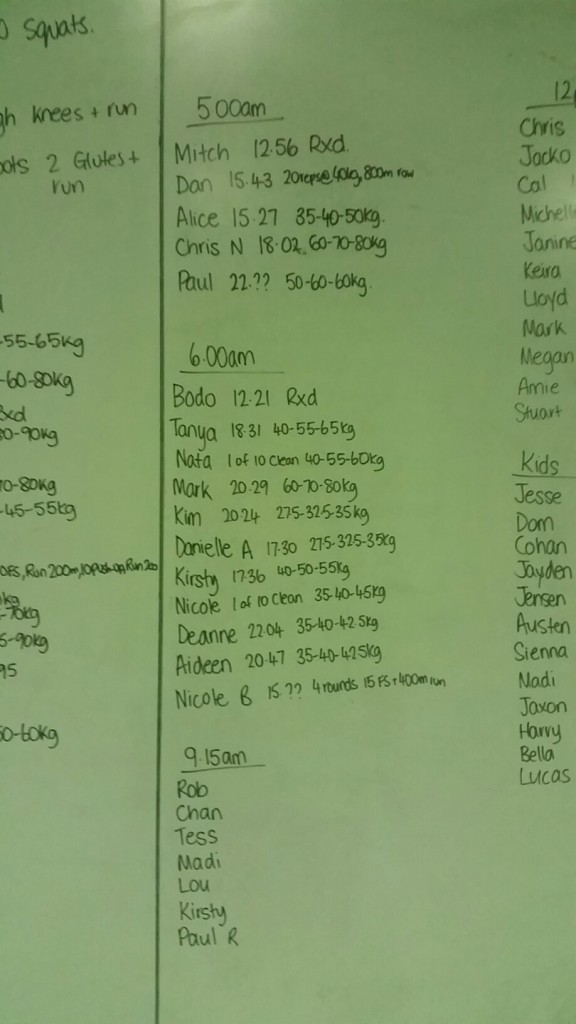 Squats.
knees + run
2 Glutes +
run
-55-65kg
-60-80kg
0-90kg
70-80kg
-45-55kg
Run 200m, 10 Push up, Run 200
kg
-70kg
5-90kg
95
50-60kg
5.00am
Mitch 12.56 Rxd.
Dan 15.43 20reps@40kg, 800m row
Alice 15.27 35-40-50kg.
Chris N 18.02. 60-70-80kg
Paul 22.?? 50-60-60kg.
6.00am
Bodo 12.21 Rxd
Tanya 18.31 40-55-65kg
Nata 1 of 10 Clean 40-55-60kg
Mark 20.29 60-70-80kg
Kim 20.24 27.5-32.5-35kg
Danielle A 17.30 27.5-32.5-35kg
Kirsty 17.36 40-50-55kg
Nicole 1 of 10 Clean 35-40-45kg
Deanne 22.04 35-40-42.5kg
Aideen 20.47 35-40-42.5kg
Nicole B 15.?? 4 rounds 15 FS + 400m run
9.15am
Rob
Chan
Tess
Madi
Lou
Kirsty
Paul R
12
Chris
Jacko
Cal
Michell
Janine
Keira
Lloyd
Mark
Megan
Amie
Stuart
Kids
Jesse
Dom
Cohan
Jayden
Jensen
Austen
Sienna
Madi
Jaxon
Harry
Bella
Lucas